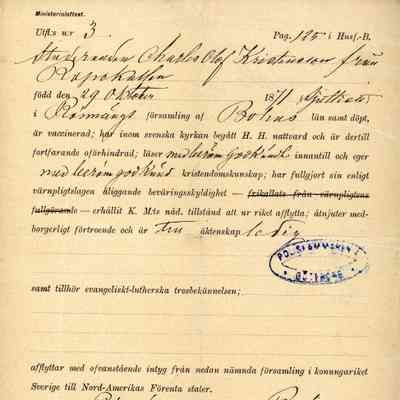 Ministerialattest.
Utfl:s n:r 3. Pag. 125 i Husf.-B.
Studeranden Charles Olof Kristensson från
född den 29 Oktober 1871
i församling af Bohus län samt döpt,
är vaccinerad; har inom svenska kyrkan begått H. H. nattvard och är dertill
fortfarande oförhindrad; läser med beröm godkänd innantill och eger
med beröm godkänd kristendomskunskap; har fullgjort sin enligt
värnpligtslagen åliggande beväringsskyldighet — frikallats från värnpligtens
fullgörande — erhållit K. M:ts nåd. tillstånd att ur riket afflytta; åtnjuter med-
borgerligt förtroende och är fri äktenskap ledig
POLISKAMMAREN I
GÖTEBORG
samt tillhör evangeliskt-lutherska trosbekännelsen;
afflyttar med ofvanstående intyg från nedan nämnda församling i konungariket
Sverige till Nord-Amerikas Förenta stater.